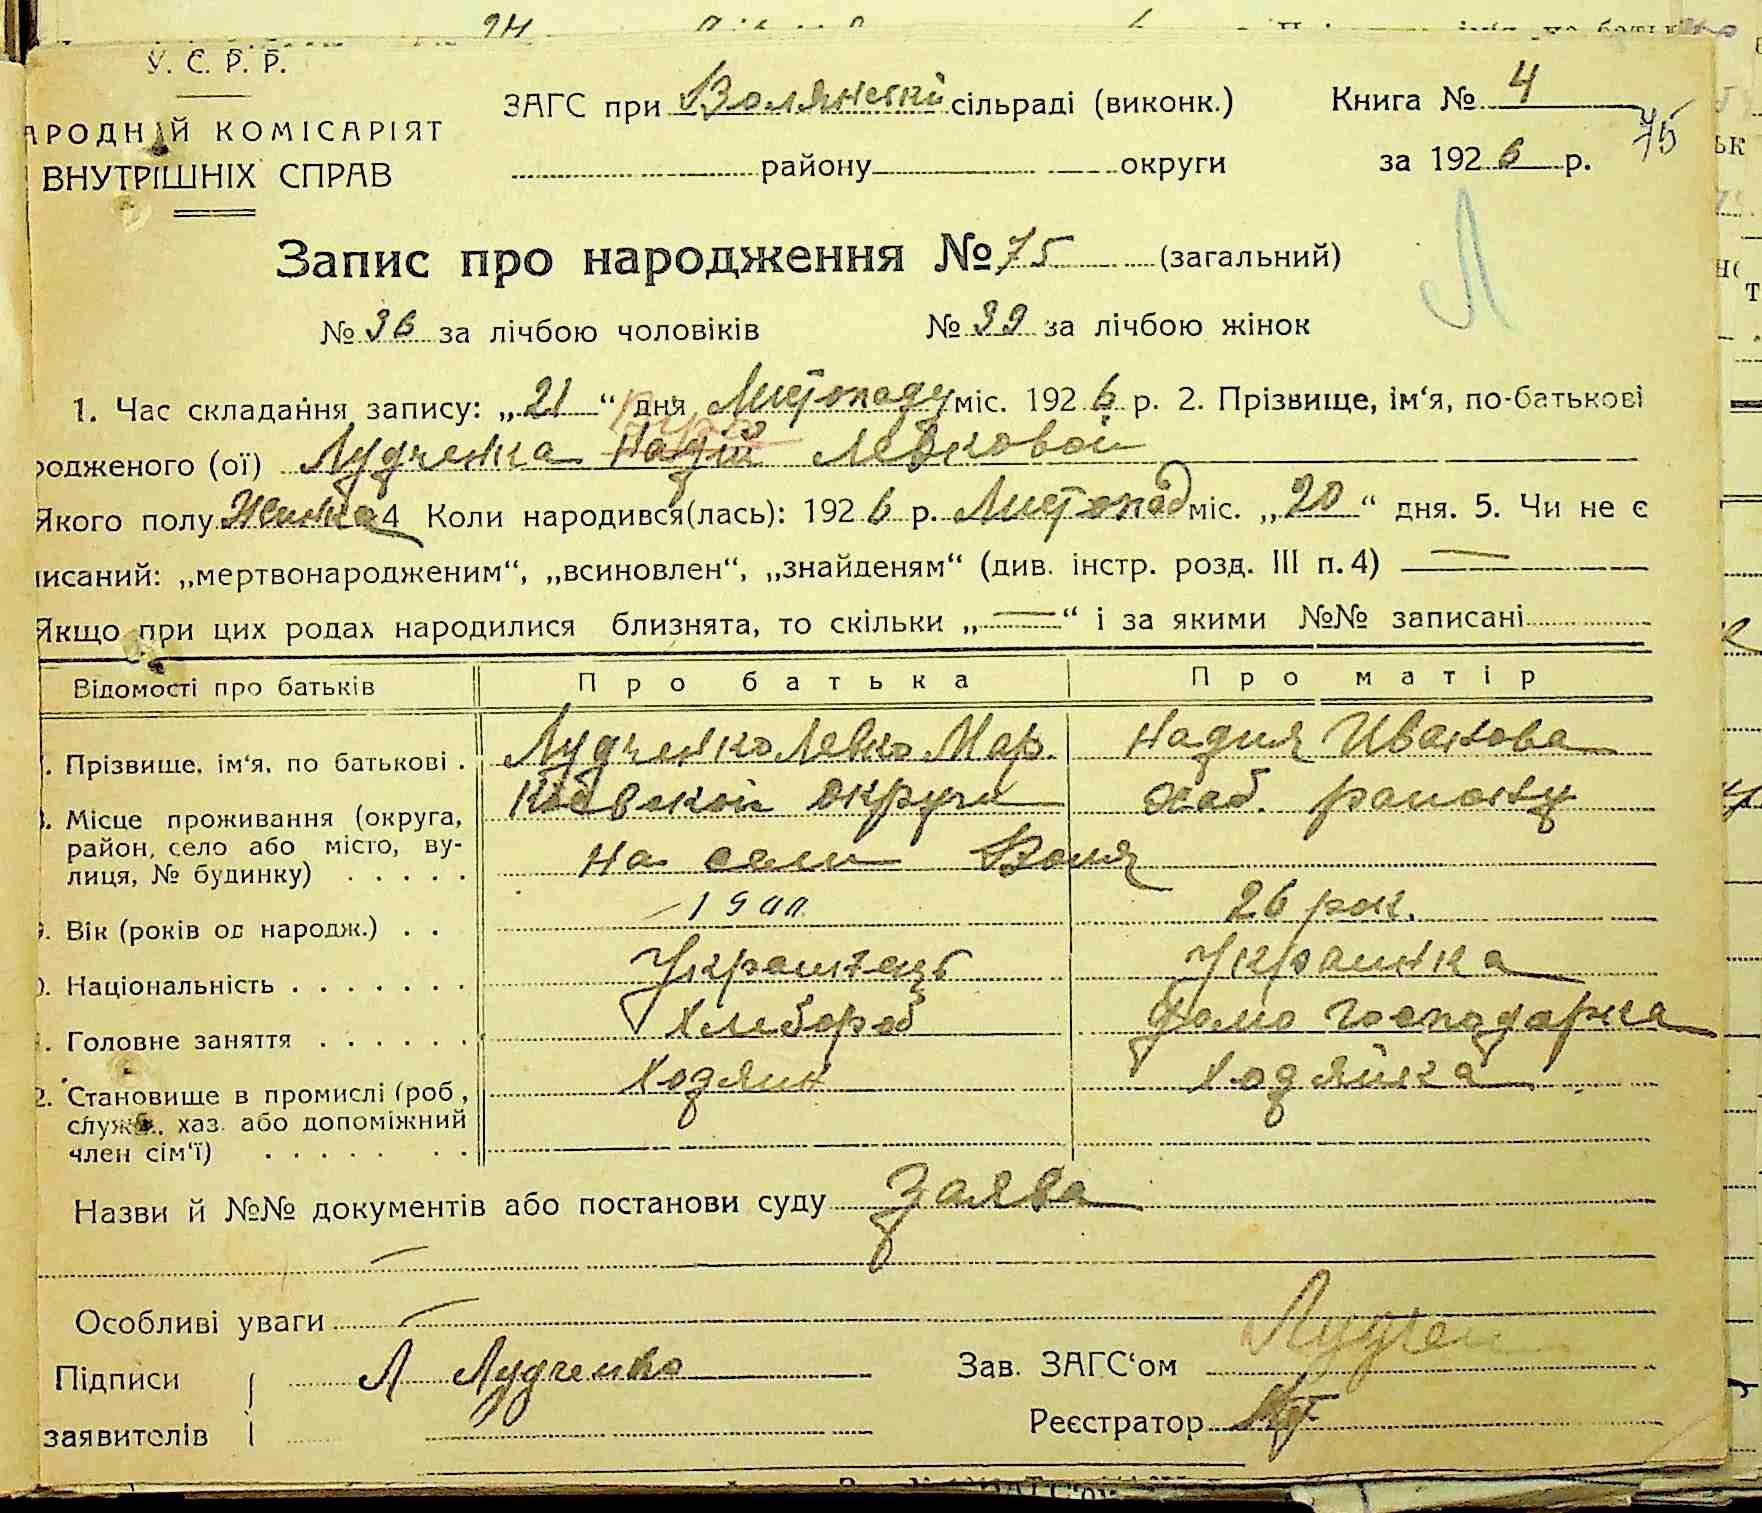 У. С. Р. Р.
ЗАГС при Волянскій сільраді (виконк.) Книга № 4
АРОДНІЙ КОМІСАРІЯТ
75
ВНУТРІШНІХ СПРАВ
району округи за 1926 р.
Запис про народження № 75 (загальний)
Л
№ 36 за лічбою чоловіків № 39 за лічбою жінок
1. Час складання запису: „21“ дня Листопаду міс. 1926 р. 2. Прізвище, ім‘я, по-батькові
родженого (ої) Лудченка Надії Левковой
Якого полу Жинка 4 Коли народився(лась): 1926 р. Листопад міс. „20“ дня. 5. Чи не є
писаний: „мертвонародженим“, „всиновлен“, „знайденям“ (див. інстр. розд. III п. 4) —
Якщо при цих родах народилися близнята, то скільки „—“ і за якими №№ записані
Відомості про батьків Про батька Про матір
Прізвище, ім‘я, по батькові . Лудченко Левко Мар. Надия Ивакова
Місце проживання (округа, Киевской округи Хаб. району
район, село або місто, ву-
лиця, № будинку) . . . . . на сели Воля
Вік (років од народж.) . . 26 рок.
Національність . . . . . . . Украинець Украинка
Головне заняття . . . . . . Хлебороб домо господарка
2. Становище в промислі (роб, Ходяин Ходяйка
служб., хаз. або допоміжний
член сім‘ї) . . . . . . .
Назви й №№ документів або постанови суду Заява
Особливі уваги —
Підписи Л Лудченко Зав. ЗАГС‘ом Лудчен
заявителів Реєстратор